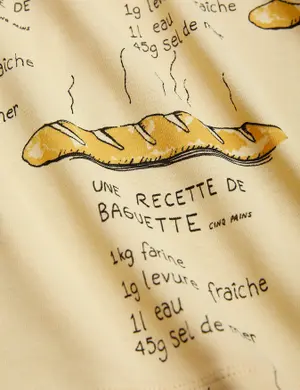 DE
1g levure fraîche
1l eau
45g sel de
fraîche
mer
UNE RECETTE DE
BAGUETTE CINQ MINS
1kg farine
1g levure fraîche
1l eau
45g sel de mer